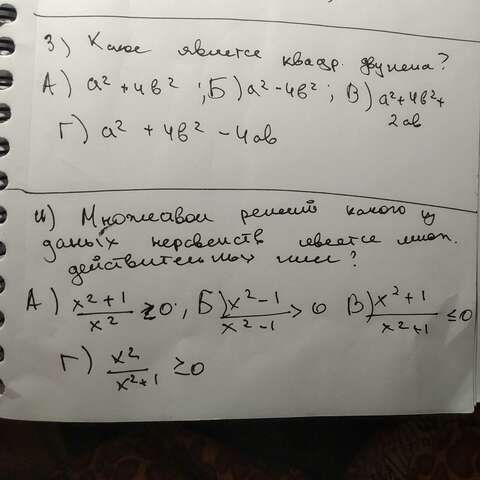 3) Какое является квадр. двучлена?
А) a² + 4b² ; Б) a² - 4b² ; В) a² + 4b² +
2ab
Г) a² + 4b² - 4ab
4) Множеством решений какого из
даных неравенств является множ.
действительных чисел?
А) x² + 1 / x² ≥ 0 ; Б) x² - 1 / x² - 1 > 0 В) x² + 1 / x² + 1 ≤ 0
Г) x² / x² + 1 ≥ 0